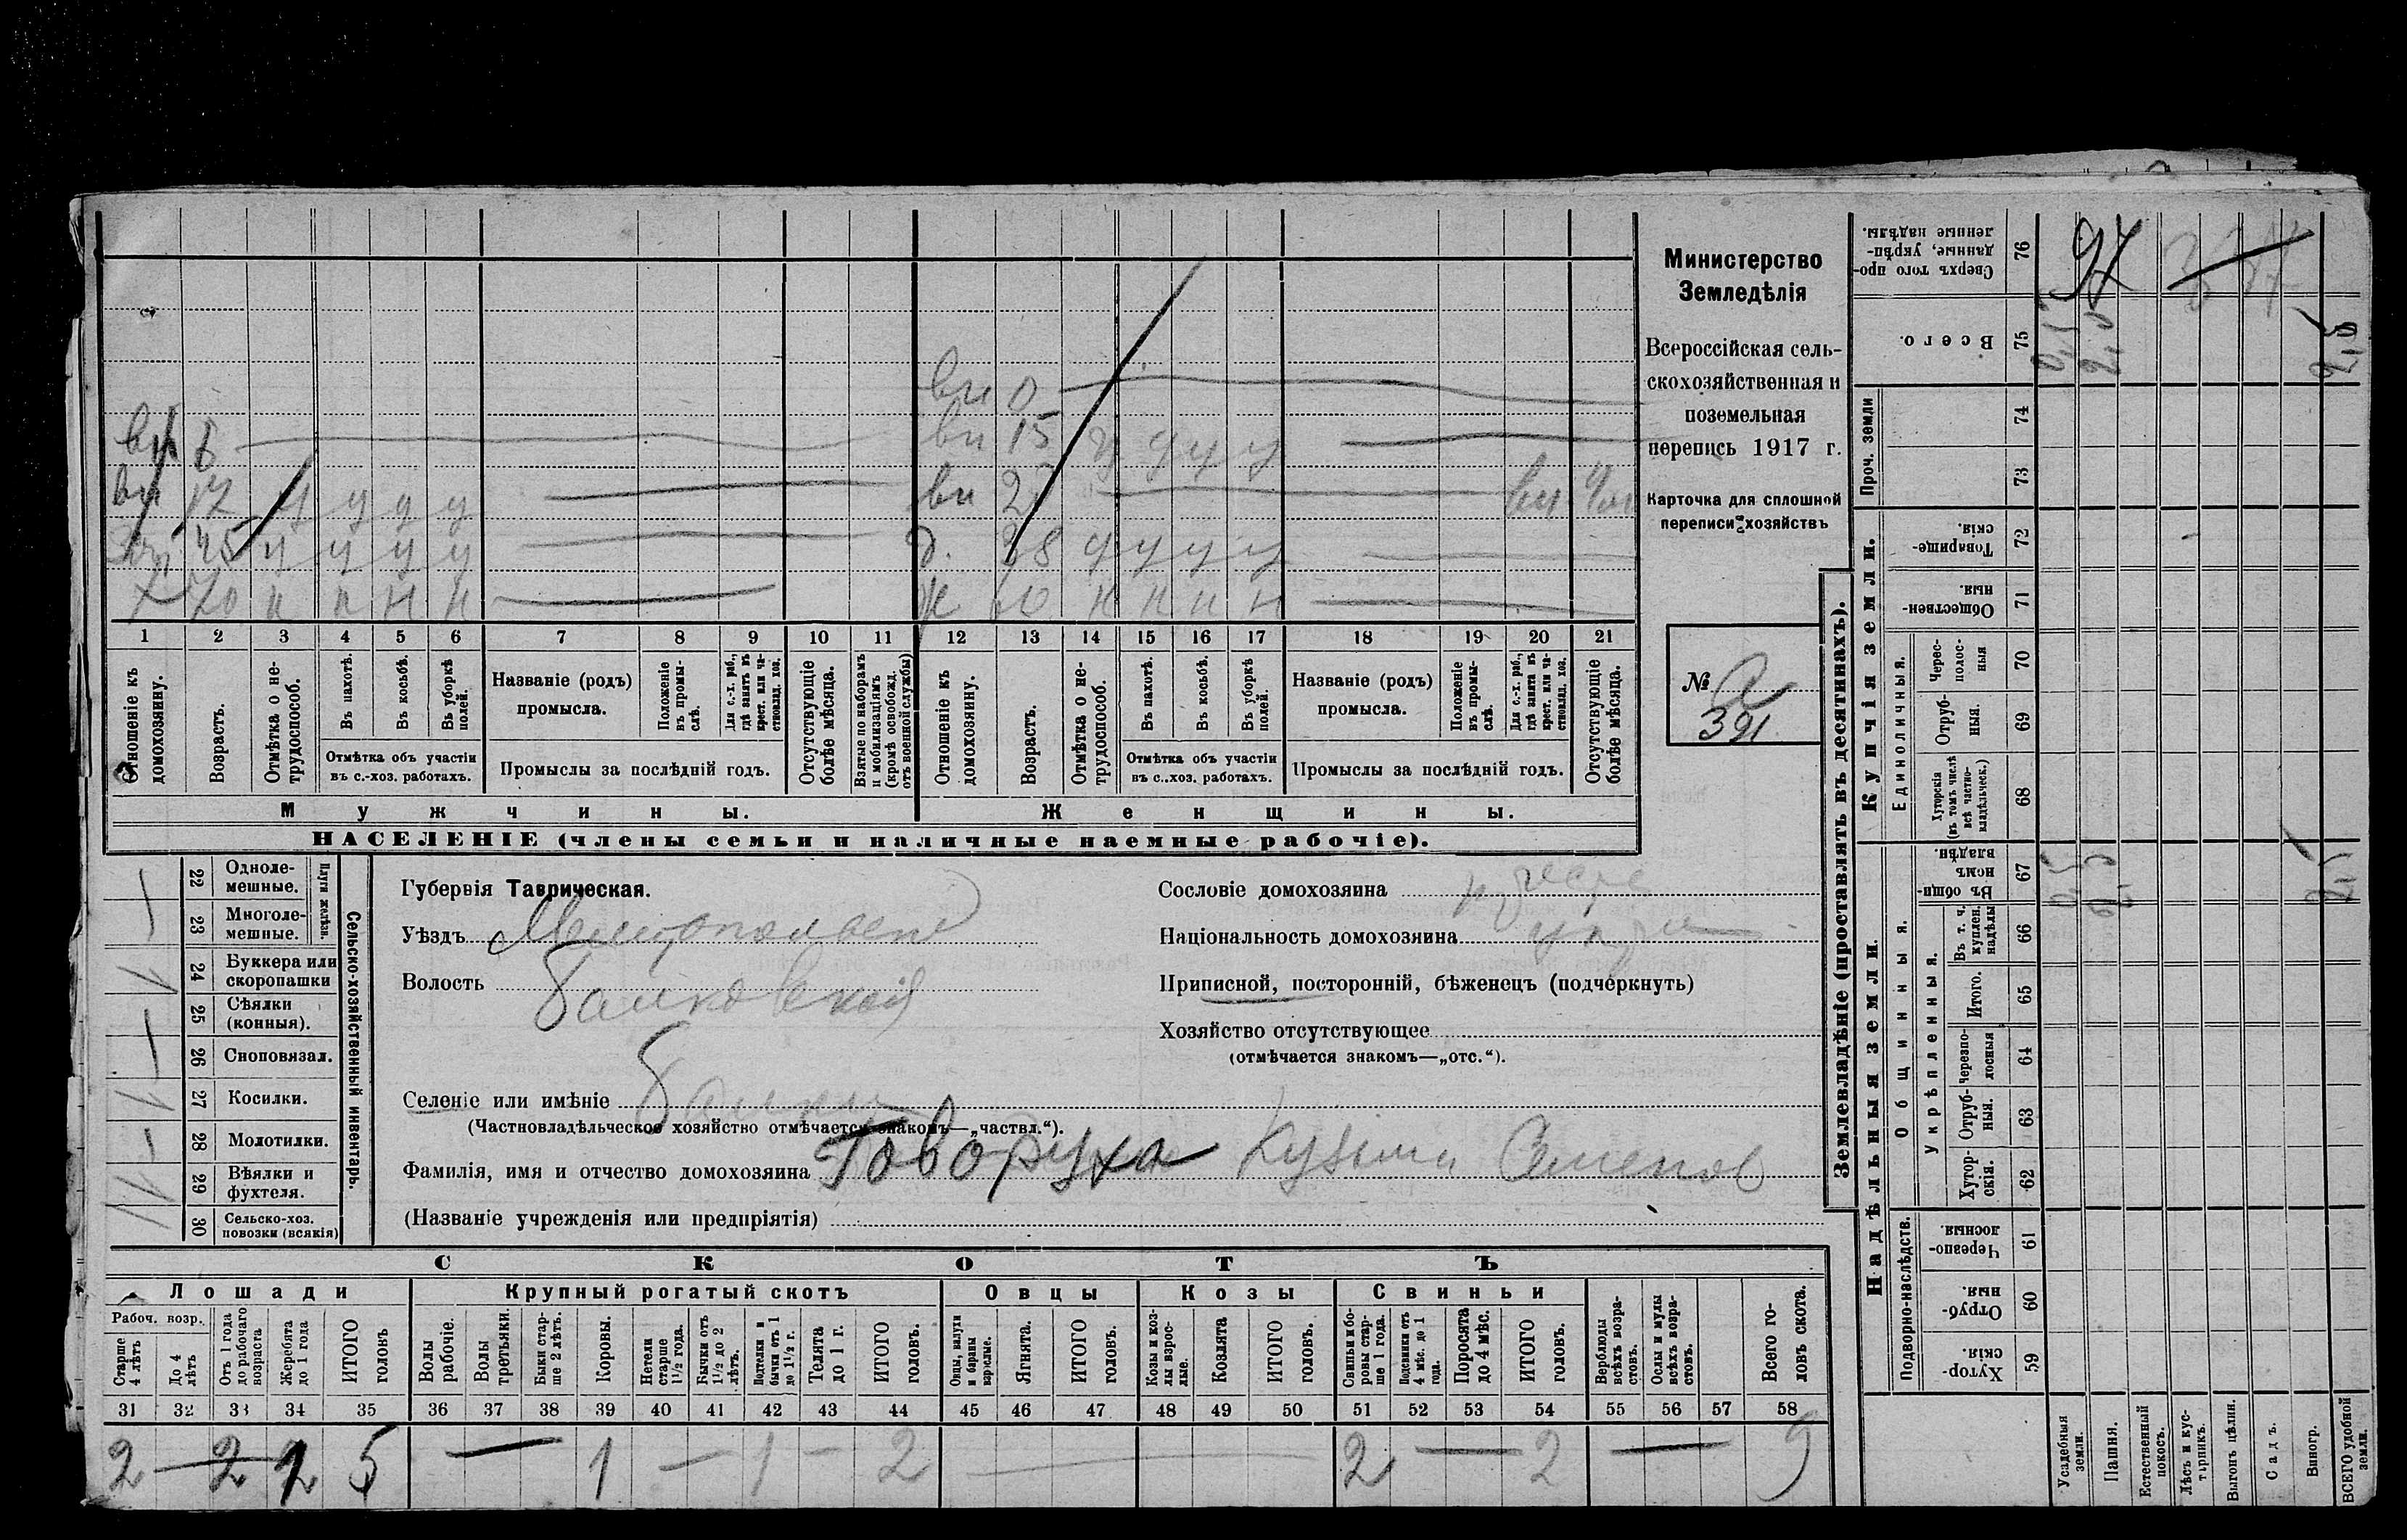 Министерство
Земледѣлія
Всероссійская сель-
скохозяйственная и
поземельная
перепись 1917 г.
Карточка для сплошной
переписи хозяйствъ
№ 2
391
вн 0
вн 6 вн 15 у у у у
вн 17 у у у у вн
45 у у у у д. 38 у у у у
70 н н н н ж н н н н
1 2 3 4 5 6 7 8 9 10 11 12 13 14 15 16 17 18 19 20 21
Отношеніе къ домохозяину.
Возрастъ.
Отмѣтка о не-трудоспособ.
Въ пахотѣ.
Въ косьбѣ.
Въ уборкѣ полей.
Отмѣтка объ участіи
въ с.-хоз. работахъ.
Названіе (родъ)
промысла.
Положеніе въ промы-слѣ.
Для с.-х. раб., гдѣ занятъ въ крест. или ча-ствовлад. хоз.
Промыслы за послѣдній годъ.
Отсутствующіе болѣе мѣсяца.
Взятые по наборамъ и мобилизаціямъ (кромѣ освобожд. отъ военной службы)
Отношеніе къ домохозяину.
Возрастъ.
Отмѣтка о не-трудоспособ.
Въ пахотѣ.
Въ косьбѣ.
Въ уборкѣ полей.
Отмѣтка объ участіи
въ с.-хоз. работахъ.
Названіе (родъ)
промысла.
Положеніе въ промы-слѣ.
Для с.-х. раб., гдѣ занята въ крест. или ча-ствовлад. хоз.
Промыслы за послѣдній годъ.
Отсутствующіе болѣе мѣсяца.
Мужчины. Женщины.
НАСЕЛЕНІЕ (члены семьи и наличные наемные рабочіе).
Сельско-хозяйственный инвентарь.
Плуги желѣзн.
22 Одноле-мешные.
23 Многоле-мешные.
24 Буккера или скоропашки
25 Сѣялки (конныя).
26 Сноповязал.
27 Косилки.
28 Молотилки.
29 Вѣялки и фухтеля.
30 Сельско-хоз. повозки (всякія)
Губернія Таврическая.
Уѣздъ Мелитопольскій
Волость Балковская
Селеніе или имѣніе Балки
(Частновладѣльческое хозяйство отмѣчается знакомъ—„частвл.“).
Фамилія, имя и отчество домохозяина Говоруха Кузьма Семенов
(Названіе учрежденія или предпріятія)
Сословіе домохозяина
Національность домохозяина
Приписной, посторонній, бѣженецъ (подчеркнуть)
Хозяйство отсутствующее
(отмѣчается знакомъ—„отс.“).
СКОТЪ
Лошади Крупный рогатый скотъ Овцы Козы Свиньи
Рабоч. возр.
Старше 4 лѣтъ
До 4 лѣтъ
Отъ 1 года до рабочаго возраста
Жеребята до 1 года
ИТОГО головъ
Волы рабочіе.
Волы третьяки.
Быки стар-ше 2 лѣтъ.
Коровы.
Нетели старше 1½ года.
Бычки отъ 1½ до 2 лѣтъ.
Подтелки и бычки отъ 1 до 1½ г.
Телята до 1 г.
ИТОГО головъ.
Овцы, валухи и бараны взрослые.
Ягнята.
ИТОГО головъ.
Козы и коз-лы взрос-лые.
Козлята
ИТОГО головъ.
Свиньи и бо-ровы стар-ше 1 года.
Подсвинки отъ 4 мѣс. до 1 года.
Поросята до 4 мѣс.
ИТОГО головъ.
Верблюды всѣхъ возра-стовъ.
Ослы и мулы всѣхъ возра-стовъ.
Всего го-ловъ скота.
31 32 33 34 35 36 37 38 39 40 41 42 43 44 45 46 47 48 49 50 51 52 53 54 55 56 57 58
2 — 2 5 — 1 — 1 — 2 — 2 — 2 — 9
Землевладѣніе (проставлять въ десятинахъ).
Купчія земли.
Надѣльныя земли.
Сверхъ того про-данные, укрѣп-ленные надѣлы. 76
Всего. 75
Проч. земли 74 73
Товарище-скія. 72
Обществен-ныя 71
Единоличныя.
Черес-полос-ныя 70
Отруб-ныя. 69
Хуторскія (въ томъ числѣ всѣ частно-владѣльческ.) 68
Общинныя.
Въ общи-номъ владѣн. 67
Въ т. ч. куплен. надѣлы 66
Укрѣпленныя.
Итого. 65
Черезпо-лосныя 64
Отруб-ныя. 63
Хутор-скія. 62
Подворно-наслѣдств.
Черезпо-лосныя 61
Отруб-ныя. 60
Хутор-скія. 59
Усадебныя земли.
Пашня.
Естественный покосъ.
Лѣсъ и кус-тарникъ.
Выгонъ цѣлин.
Садъ.
Виногр.
ВСЕГО удобной земли.
97